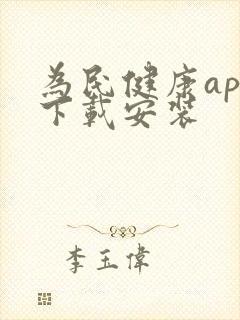 為民健康ap
下載安裝
李玉偉